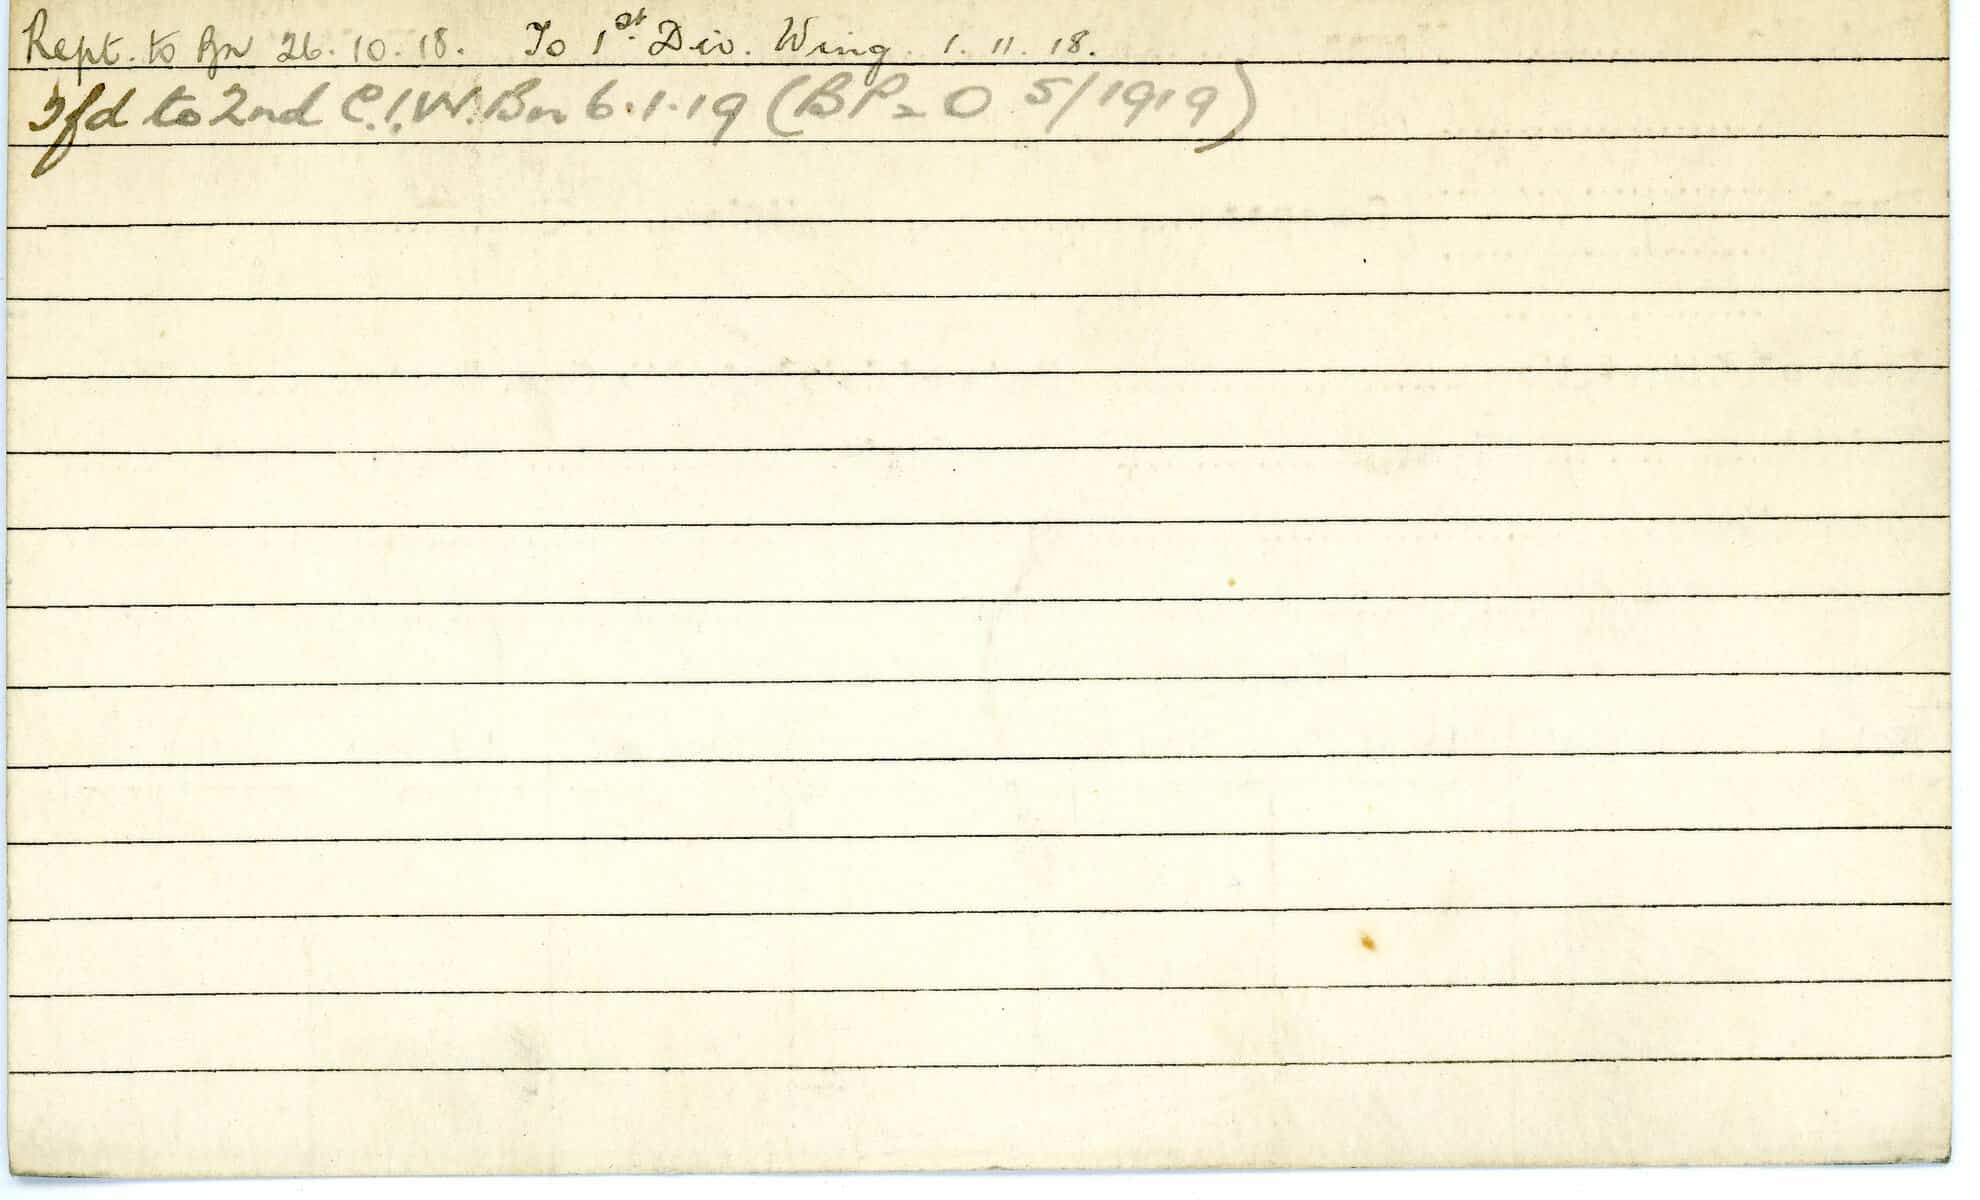 Rept. to Bn 26.10.18. To 1st Div. Wing. 1.11.18.
Tfd to 2nd C.I.W. Bn 6.1.19 (BP2O 5/1919)